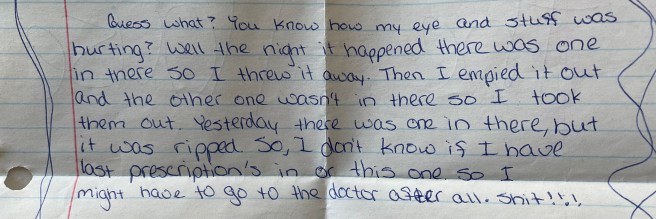 Guess what? You know how my eye and stuff was
hurting? Well the night it happened there was one
in there so I threw it away. Then I empied it out
and the other one wasn't in there so I took
them out. Yesterday there was one in there, but
it was ripped. So, I don't know if I have
last prescription's in or this one so I
might have to go to the doctor after all. Shit!!!!